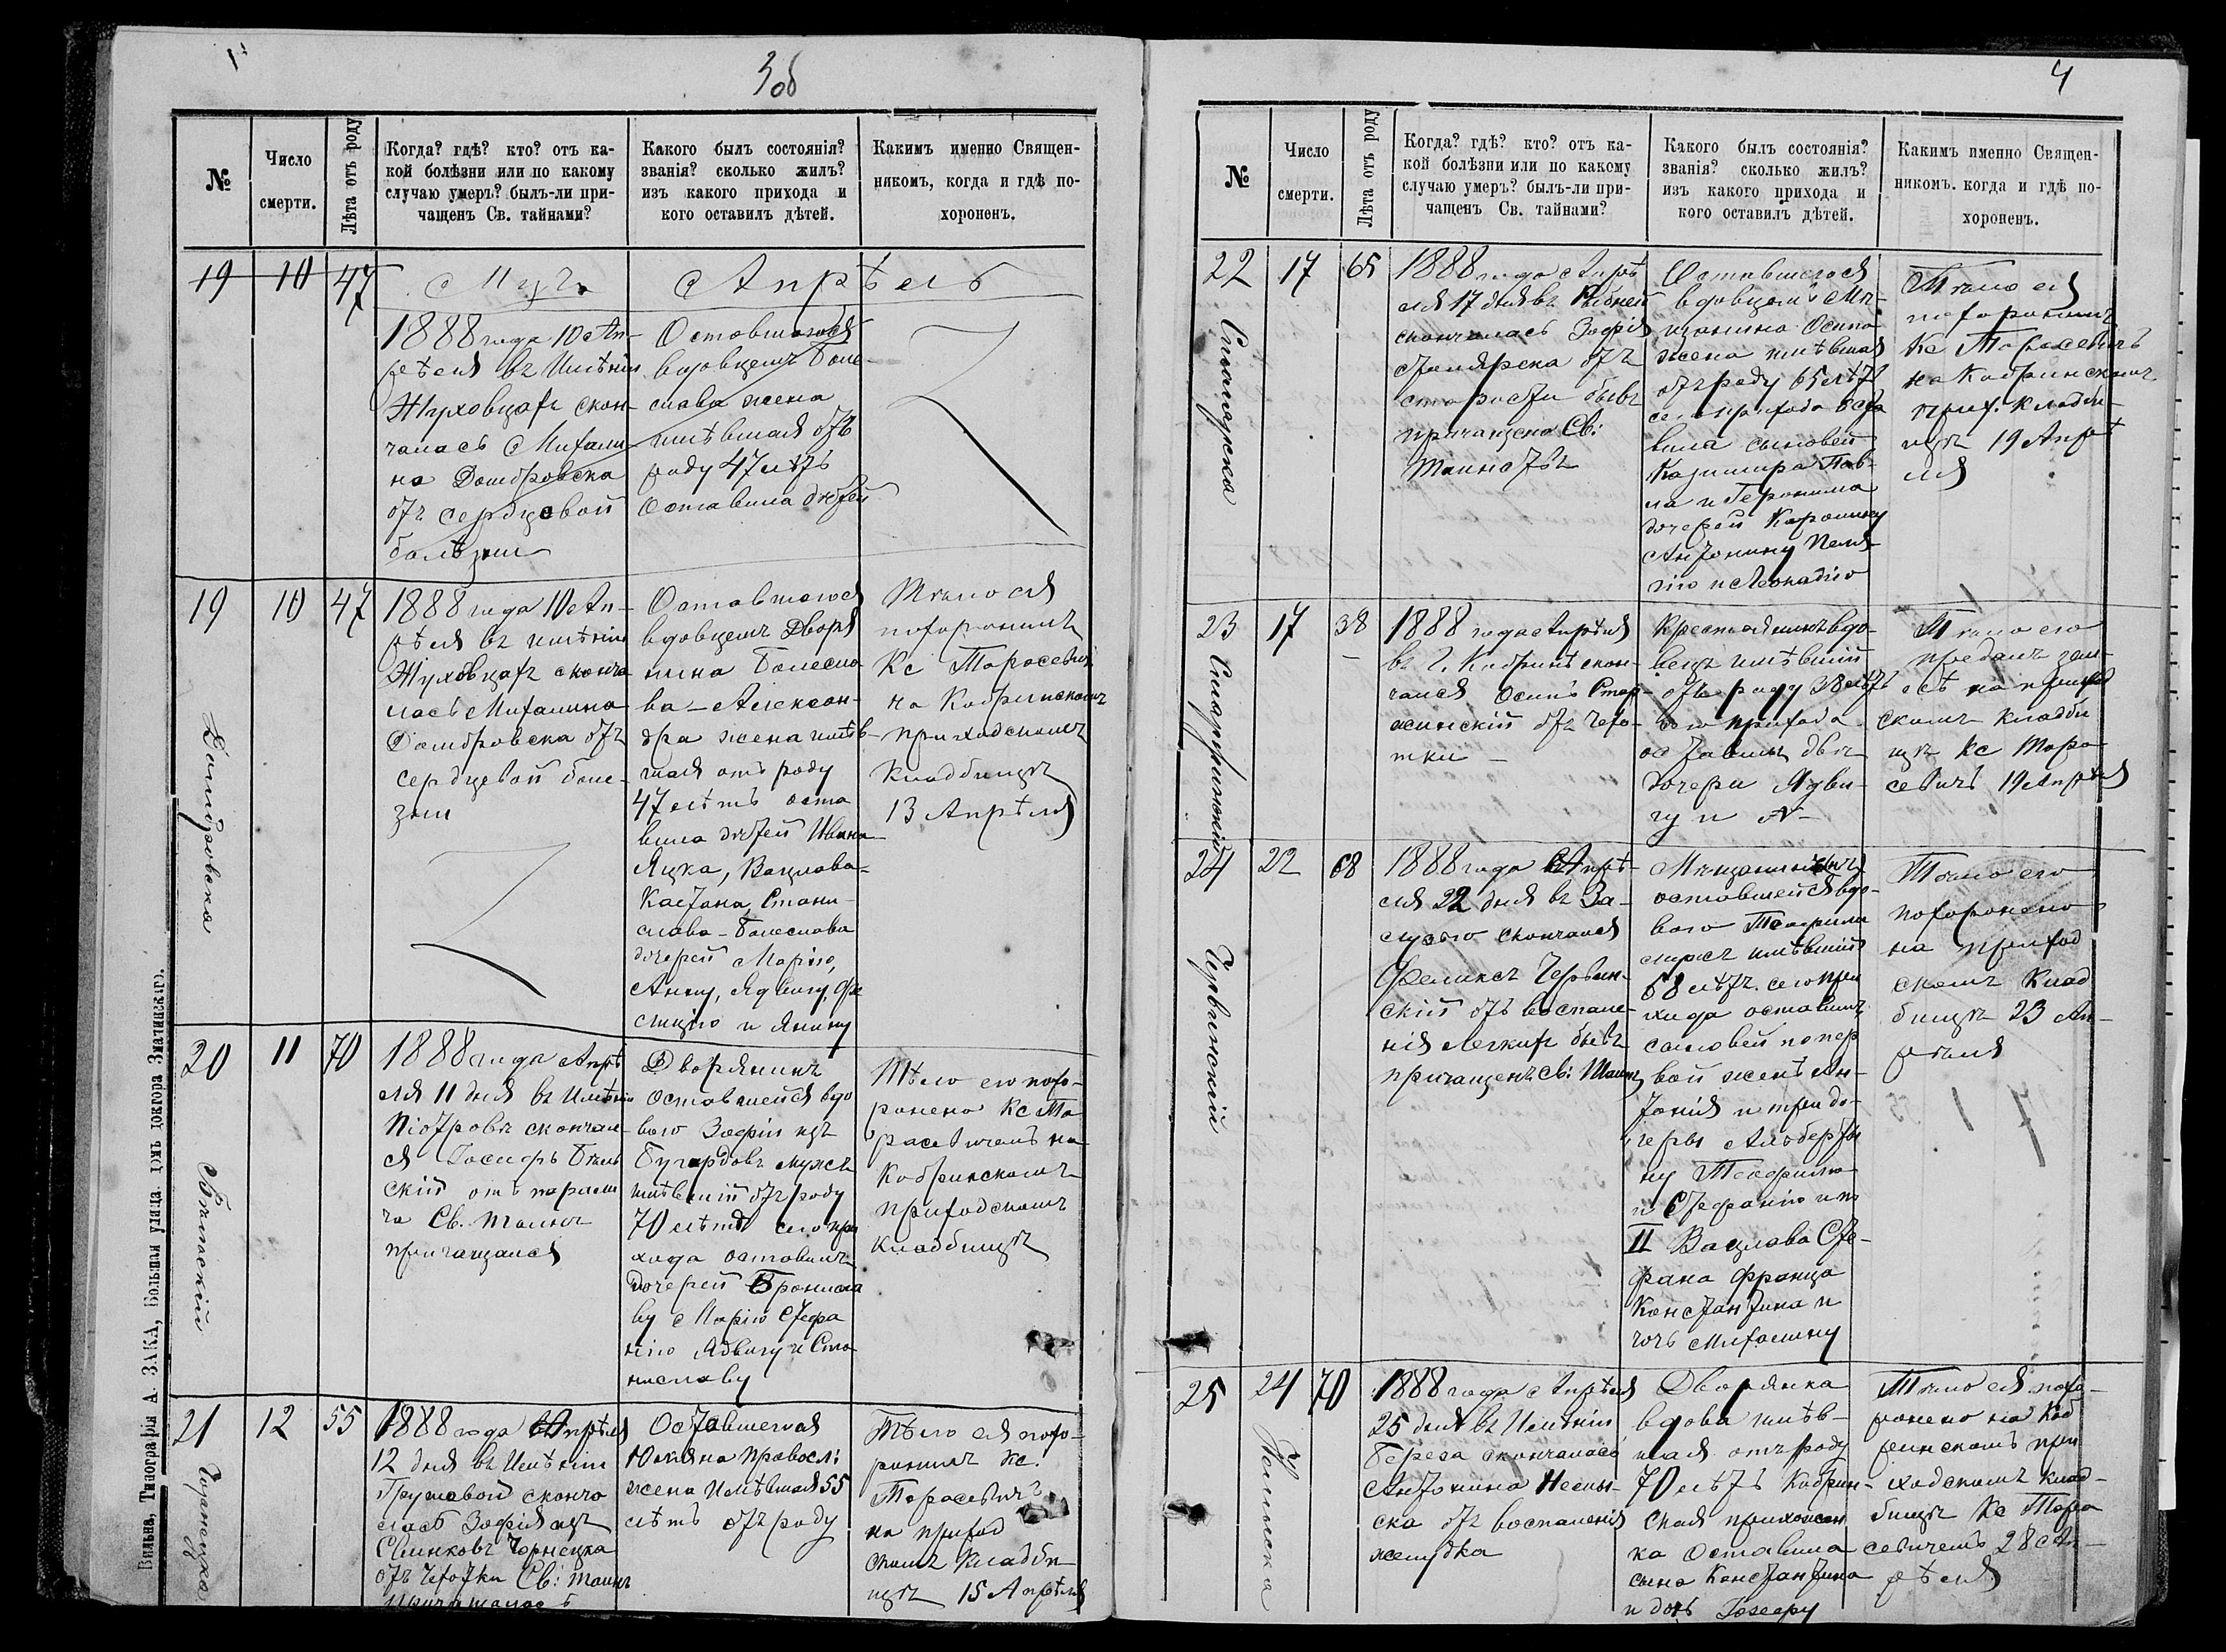 3об
№
Число
смерти.
Лѣта отъ роду
Когда? гдѣ? кто? отъ ка-
кой болѣзни или по какому
случаю умеръ? былъ-ли при-
чащенъ Св. тайнами?
Какого былъ состоянія?
званія? сколько жилъ?
изъ какого прихода и
кого оставилъ дѣтей.
Какимъ именно Священ-
никомъ, когда и гдѣ по-
хороненъ.
19 10 47
Апрѣль
1888 года 10 Ап-
рѣля въ Имѣніи
Жуховцахъ скон-
чалась Михали-
на Домбровска
отъ сердцевой
болѣзни
Оставшагося
вдовцемъ Боле-
слава жена
имѣвшая отъ
роду 47 лѣтъ
оставила дѣтей
19 10 47
Домбровска
1888 года 10 Ап-
рѣля въ имѣніи
Жуховцахъ сконча
лась Михалина
Домбровска отъ
сердцевой боле-
зни
Оставшагося
вдовцемъ Дворя
нина Болесла
ва-Алексан-
дра жена имѣв-
шая отъ роду
47 лѣтъ оста
вила дѣтей Ивана
Яцка, Вацлава-
Каетана, Стани-
слава-Болеслава
дочерей Марію,
Анну, Ядвигу, Фе
лицію и Янину
Тѣло ея
похоронилъ
Кс Тарасевич
на Кобринскомъ
приходскомъ
кладбищѣ
13 Апрѣля
20 11 70
Бѣльскій
1888 года Апрѣ
ля 11 дня въ Имѣніи
Піотровѣ скончал-
ся Іосифъ Бѣль
скій отъ парали
ча Св. Таинъ
причащался
Дворянинъ
оставшейся вдо
вою Зофіи изъ
мужъ
имѣвшій отъ роду
70 лѣтъ сего при
хода оставилъ
дочерей Бронисла
ву Марію Стефа
нію Ядвигу и Ста
ниславу
Тѣло его похо-
ронено Кс Та
расевичемъ на
Кобринскомъ
приходскомъ
кладбищѣ
21 12 55
1888 года Апрѣля
12 дня въ Имѣніи
скончa
лась Зофія изъ
отъ чахотки Св: таинъ
причащалась
Оставшегося
Юліяна православ:
жена имѣвшая 55
лѣтъ отъ роду
Тѣло ея похо-
ронилъ кс.
Тарасевичъ
на приход
скомъ кладби-
щѣ 15 Апрѣля
Вильна, Типографія А. ЗАКА, Большая улица, домъ доктора
4
№
Число
смерти.
Лѣта отъ роду
Когда? гдѣ? кто? отъ ка-
кой болѣзни или по какому
случаю умеръ? былъ-ли при-
чащенъ Св. тайнами?
Какого былъ состоянія?
званія? сколько жилъ?
изъ какого прихода и
кого оставилъ дѣтей.
Какимъ именно Священ-
никомъ, когда и гдѣ по-
хороненъ.
22 17 65
1888 года Апрѣ
ля 17 дня въ
скончалась Зофія
отъ
старости бывъ
причащена Св:
Таинствъ
Оставшегося
вдовцемъ Мѣ-
щанина Осипа
жена имѣвшая
отъ роду 65 лѣтъ
сего прихода оста
вила сыновей
Казимира Пав-
ла и Геронима
дочерей Каролину
Антонину Пеля-
гію и Леокадію
Тѣло ея
похоронилъ
Кс Тарасевичъ
на Кобринскомъ
прих. кладби-
щѣ 19 Апрѣ
ля
23 17 38
1888 года Апрѣля
въ г. Кобринѣ скон-
чался Осипъ
отъ чахо-
тки
Крестьянинъ вдо-
вецъ имѣвшій
отъ роду 38 лѣтъ
сего прихода
оставилъ двѣ
дочери Ядви-
гу и N-
Тѣло его
предалъ зем-
лѣ на приход
скомъ кладби
щѣ Кс Тара-
севичъ 19 Апрѣля
24 22 68
Червинскій
1888 года Апрѣ-
ля 22 дня въ За-
скончался
Феликсъ Червин-
скій отъ воспале-
нія легкихъ бывъ
причащенъ Св: Таинъ
Мѣщанинъ
оставшейся вдо-
вою Теофили
мужъ имѣвшій
68 лѣтъ. сего при
хода оставилъ
сыновей по пер
вой женѣ Ан-
тонія и три до-
чери Альберти
ну Теофилю
и Стефанію и по
II Вацлава Сте-
фана Франца
Константина и
дочь Михалину
Тѣло его
похоронено
на приход
скомъ клад
бищѣ 23 Ап-
рѣля
25 24 70
1888 года Апрѣля
25 дня въ Имѣніи
Береза скончалась
Антонина
ска отъ воспаленія
желудка
Дворянка
вдова имѣв-
шая отъ роду
70 лѣтъ Кобрин-
ская прихожан
ка оставила
сына Константина
и дочь Іозефу
Тѣло ея похо-
ронено на Коб
ринскомъ при
ходскомъ клад-
бищѣ Кс Тара
севичемъ 28 Ап-
рѣля